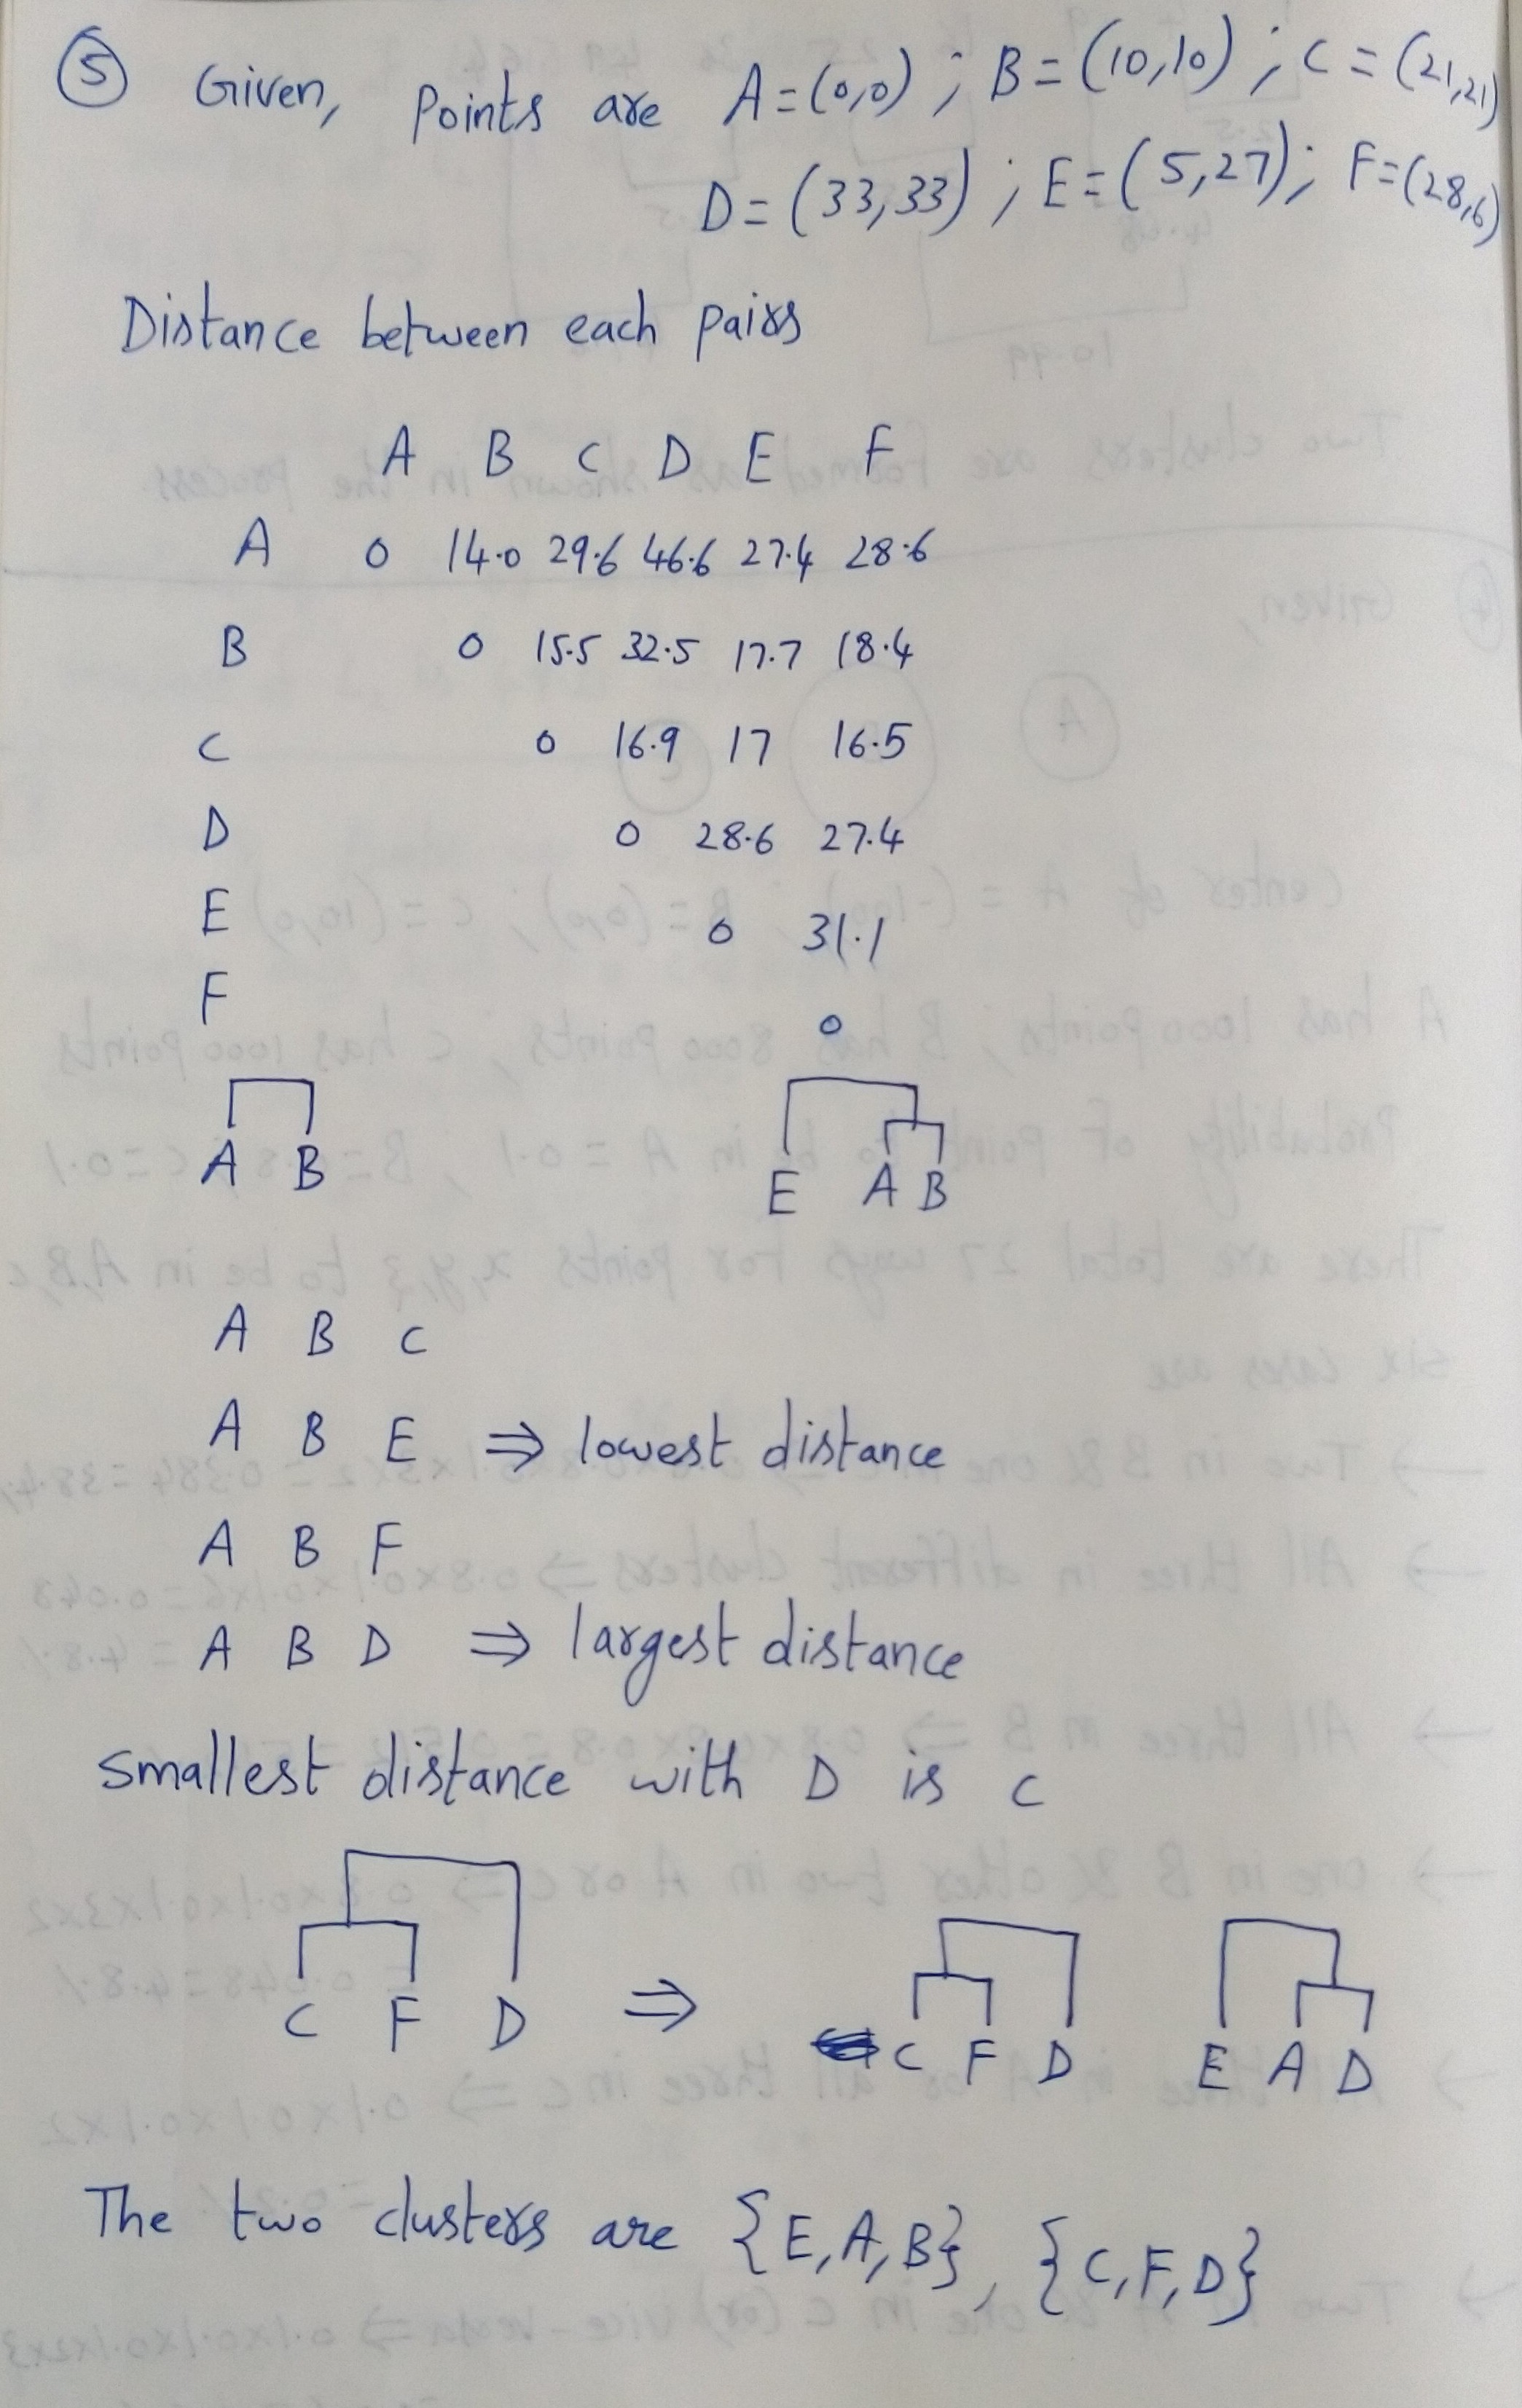 5 Given, points are A=(0,0) ; B=(10,10) ; C=(21,21)
D=(33,33) ; E=(5,27); F=(28,6)
Distance between each pairs
A B C D E F
A 0 14.0 29.6 46.6 27.4 28.6
B 0 15.5 32.5 17.7 18.4
C 0 16.9 17 16.5
D 0 28.6 27.4
E 0 31.1
F 0
A B E A B
A B C
A B E ⇒ lowest distance
A B F
A B D ⇒ largest distance
smallest distance with D is C
C F D ⇒ C F D E A D
The two clusters are {E,A,B}, {C,F,D}